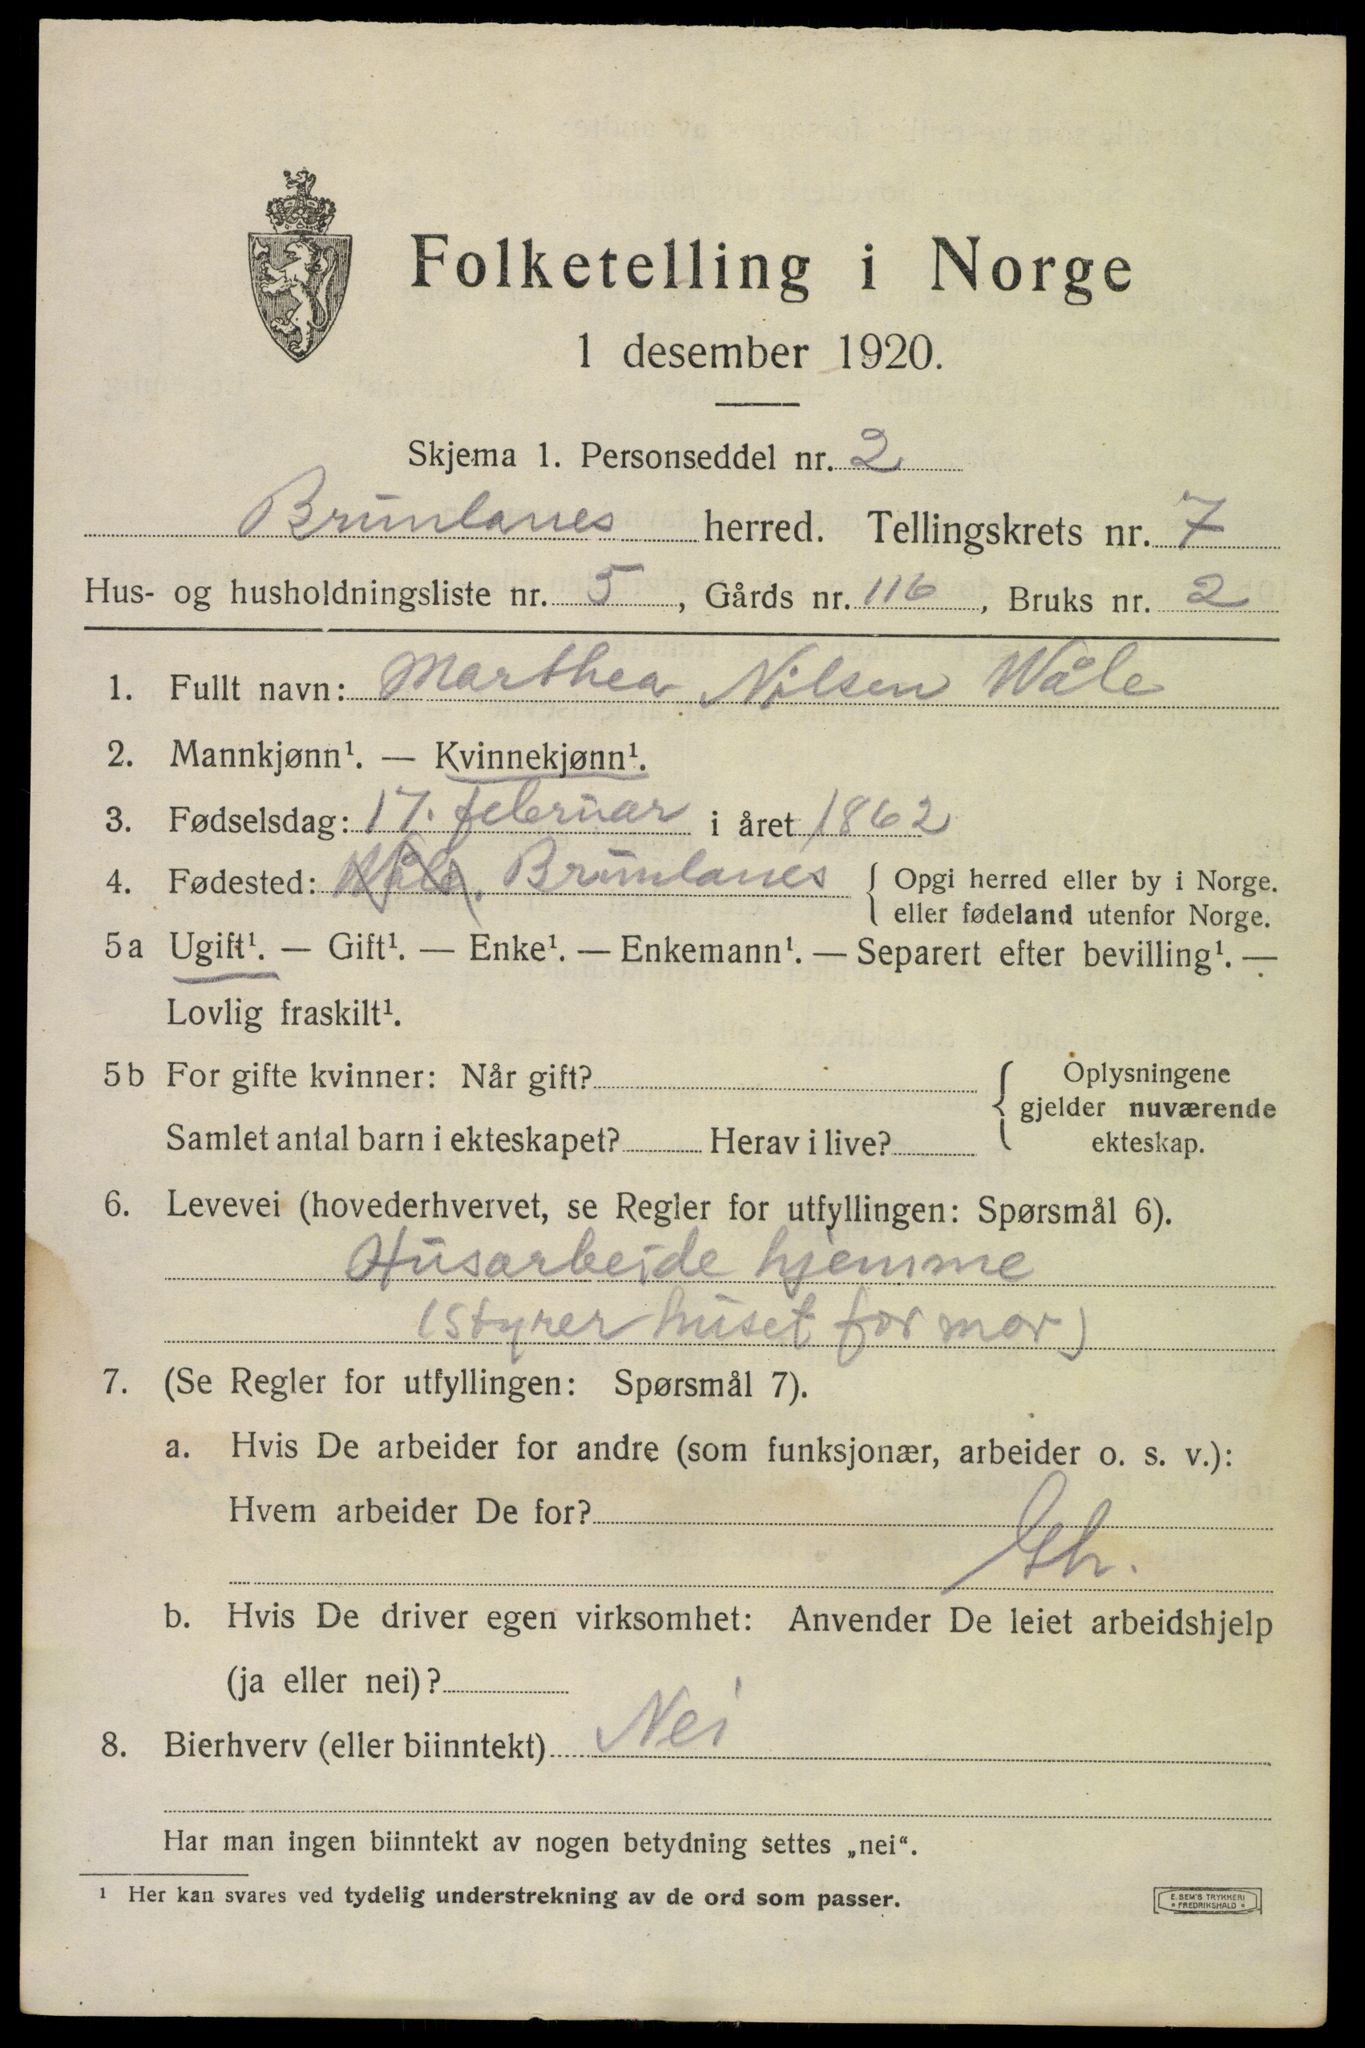 Folketelling i Norge
1 desember 1920.
Skjema 1. Personseddel nr. 2
Brunlanes herred. Tellingskrets nr. 7
Hus- og husholdningsliste nr. 5, Gårds nr. 116, Bruks nr. 2
1. Fullt navn: Marthea Nilsen Wåle
2. Mannkjønn¹. — Kvinnekjønn¹.
3. Fødselsdag: 17. februar i året 1862
4. Fødested: Wåle. Brunlanes { Opgi herred eller by i Norge.
eller fødeland utenfor Norge.
5a Ugift¹. — Gift¹. — Enke¹. — Enkemann¹. — Separert efter bevilling¹. —
Lovlig fraskilt¹.
5b For gifte kvinner: Når gift? { Oplysningene
gjelder nuværende
Samlet antal barn i ekteskapet? Herav i live? ekteskap.
6. Levevei (hovederhvervet, se Regler for utfyllingen: Spørsmål 6).
Husarbeide hjemme
(styrer huset for mor)
7. (Se Regler for utfyllingen: Spørsmål 7).
a. Hvis De arbeider for andre (som funksjonær, arbeider o. s. v.):
Hvem arbeider De for?
b. Hvis De driver egen virksomhet: Anvender De leiet arbeidshjelp
(ja eller nei)?
8. Bierhverv (eller biinntekt) Nei
Har man ingen biinntekt av nogen betydning settes „nei“.
¹ Her kan svares ved tydelig understrekning av de ord som passer.
E. SEM'S TRYKKERI
* FREDRIKSHALD *